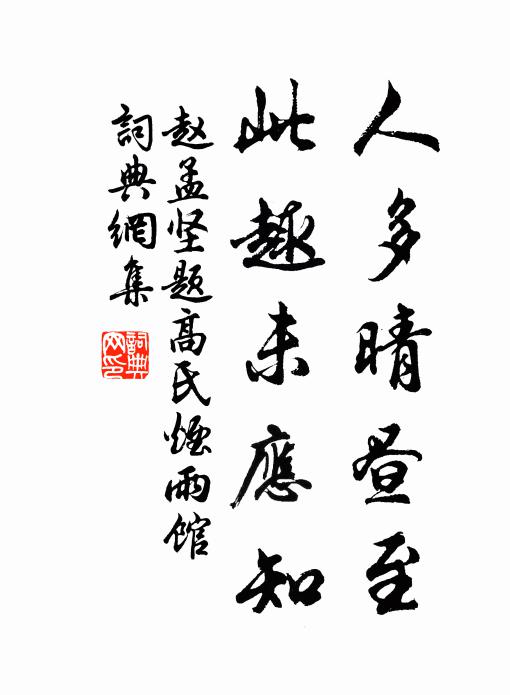 人多晴昼至
此趣未應知
赵孟坚题高氏煙雨馆
詞典網集
詞典網印